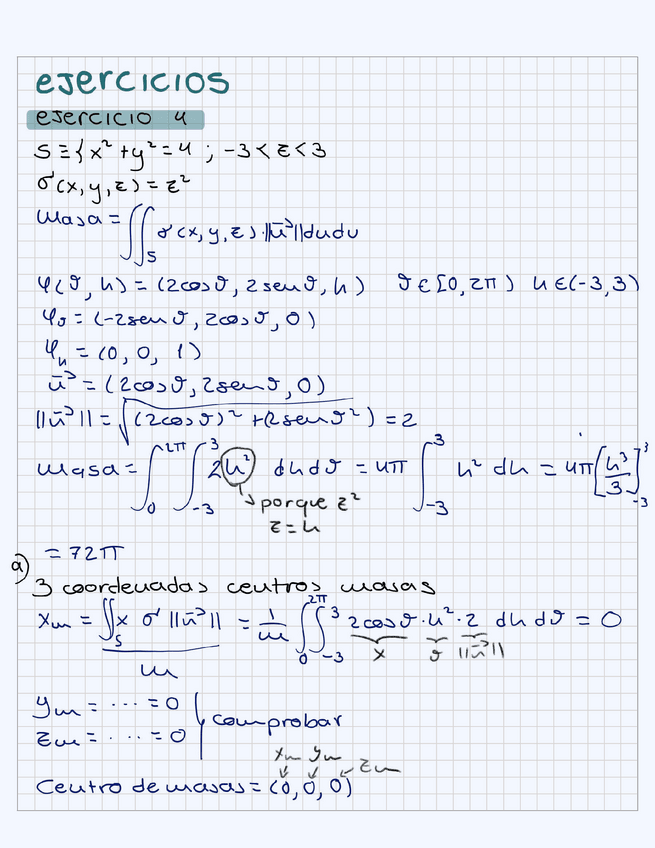 ejercicios
ejercicio 4
S ≡ { x² + y² = 4 ; -3 < z < 3
σ(x, y, z) = z²
Masa = ∬_S σ(x, y, z) · ||n⃗|| du dv
φ(θ, h) = (2cosθ, 2senθ, h) θ ∈ [0, 2π) h ∈ (-3, 3)
φ_θ = (-2senθ, 2cosθ, 0)
φ_h = (0, 0, 1)
n⃗ = (2cosθ, 2senθ, 0)
||n⃗|| = √((2cosθ)² + (2senθ²) = 2
masa = ∫_0^{2π} ∫_{-3}^{3} 2h² dh dθ = 4π ∫_{-3}^{3} h² dh = 4π [h³/3]_{-3}^{3}
↳ porque z²
z = h
= 72π
a)
3 coordenadas centros masas
x_m = ∬_S x σ ||n⃗|| / m = 1/m ∫_0^{2π} ∫_{-3}^{3} 2cosθ · h² · 2 dh dθ = 0
x σ ||n⃗||
y_m = ... = 0
z_m = ... = 0
comprobar
x_m y_m z_m
Centro de masas = (0, 0, 0)